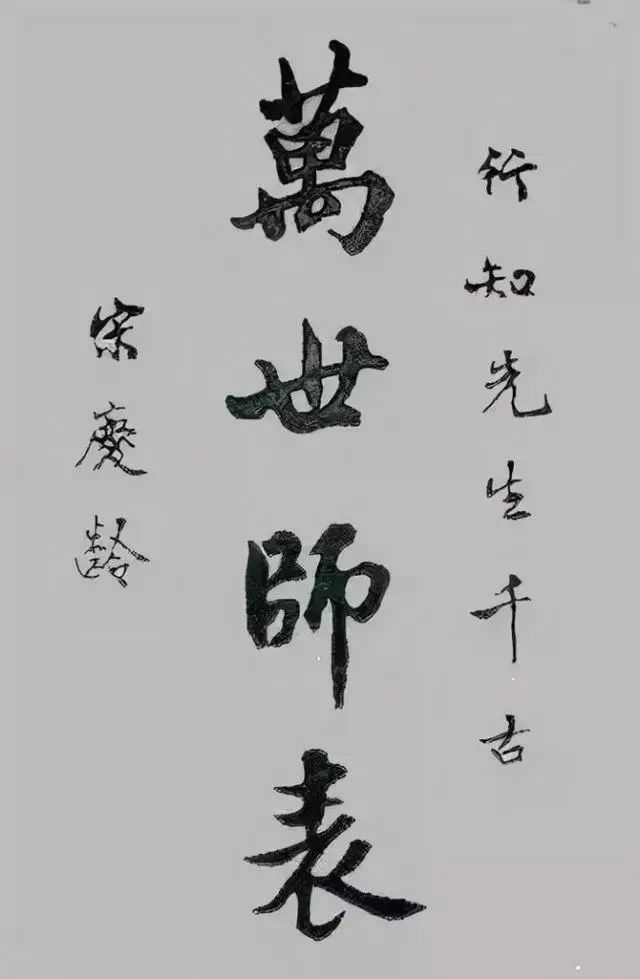 行知先生千古
萬世師表
宋慶齡